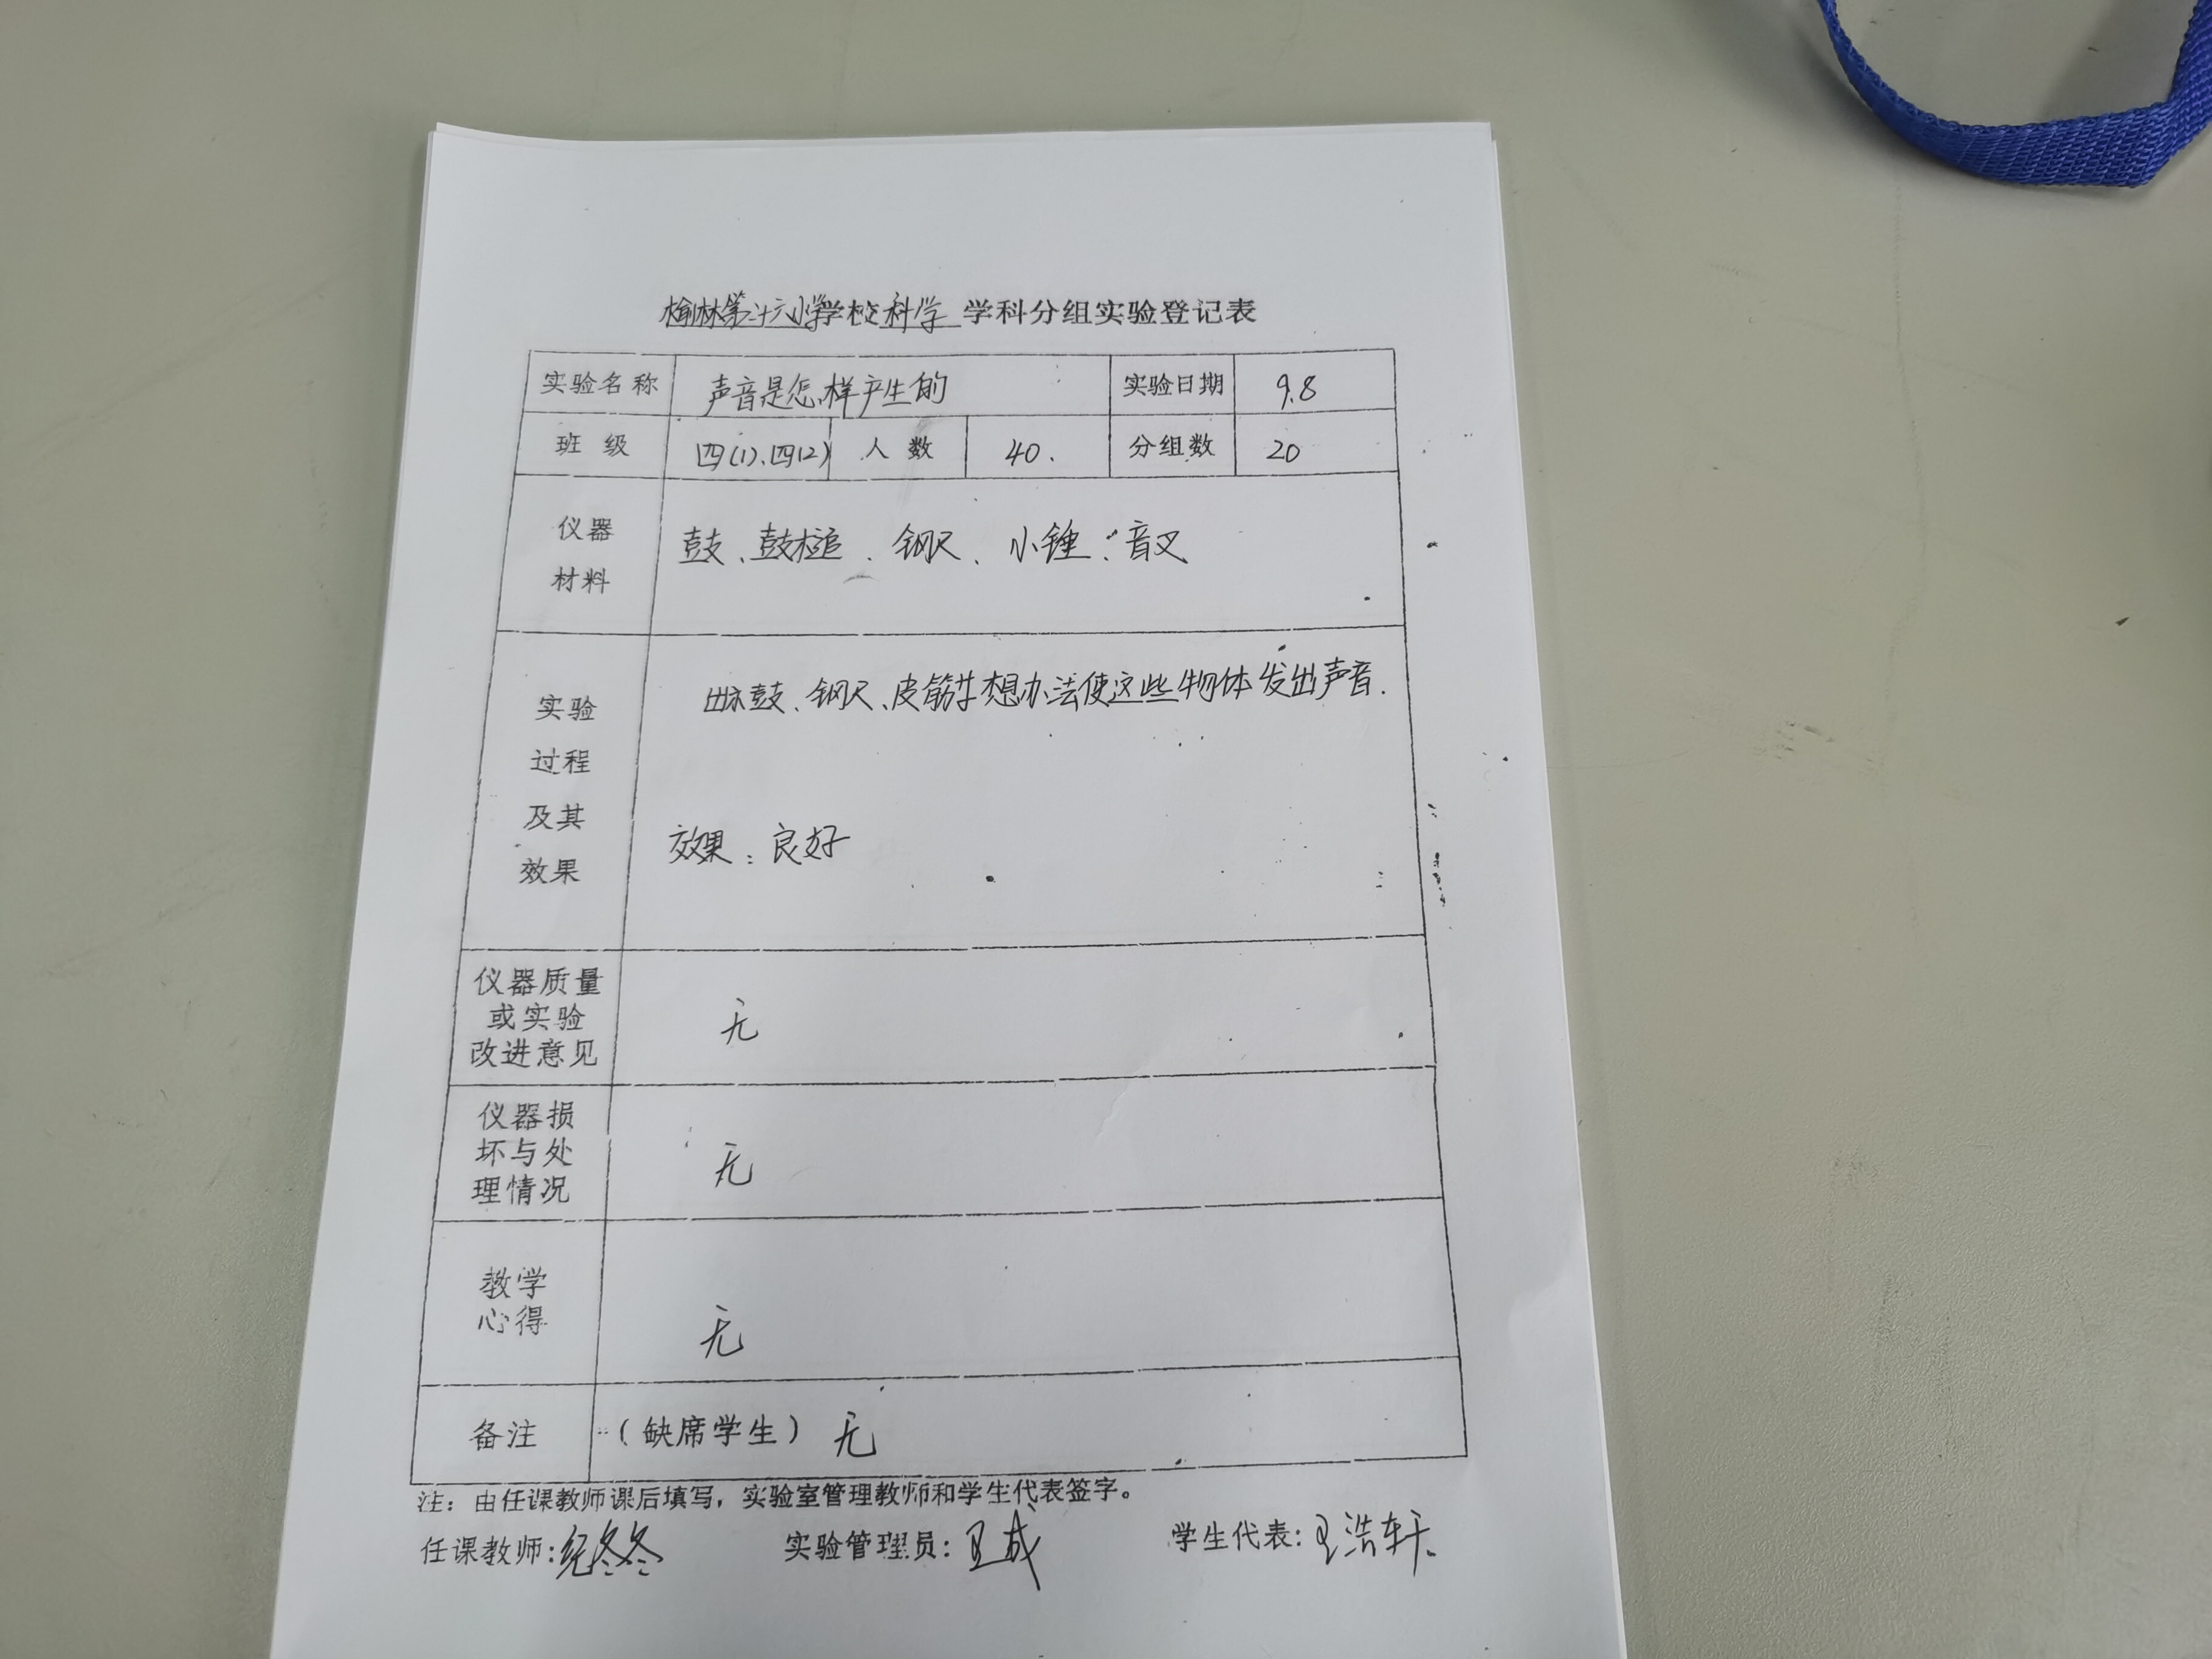 榆林第二十六小学学校科学学科分组实验登记表
实验名称 声音是怎样产生的 实验日期 9.8
班级 四(1)、四(2) 人数 40. 分组数 20
仪器
材料
鼓、鼓槌、钢尺、小锤、音叉
实验
过程
及其
效果
出示鼓、钢尺、皮筋并想办法使这些物体发出声音.
效果:良好
仪器质量
或实验
改进意见
无
仪器损
坏与处
理情况
无
教学
心得
无
备注 (缺席学生) 无
注:由任课教师课后填写,实验室管理教师和学生代表签字。
任课教师:纪冬冬 实验管理员:王成 学生代表:王浩轩